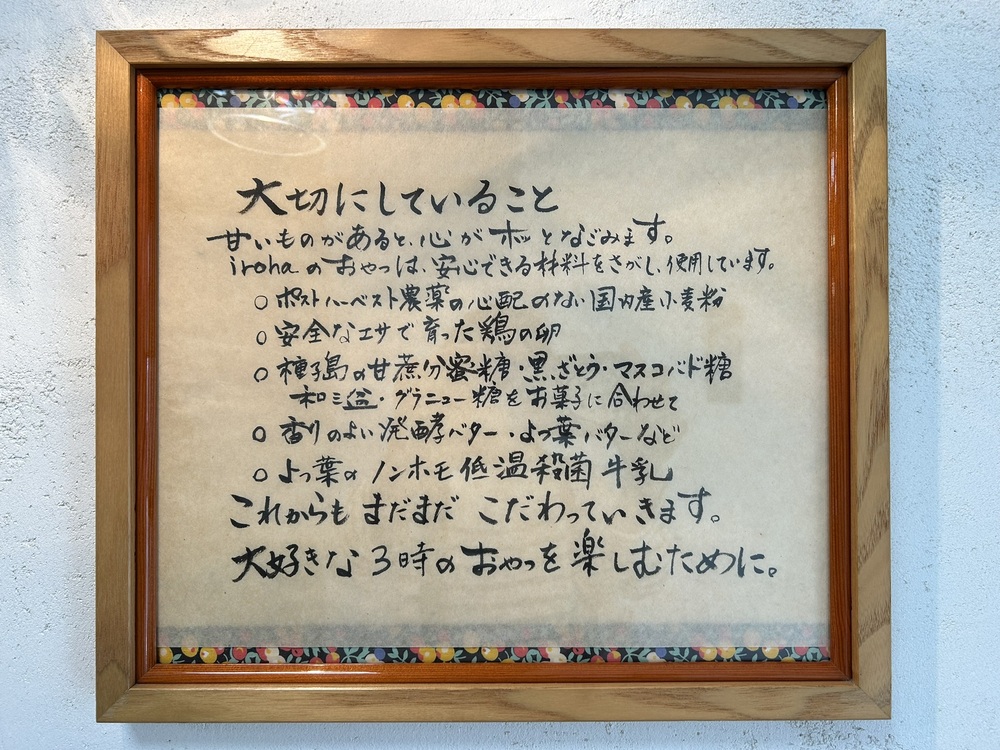 大切にしていること
甘いものがあると、心がホッとなごみます。
irohaのおやつは、安心できる材料をさがし、使用しています。
○ ポストハーベスト農薬の心配のない国内産小麦粉
○ 安全なエサで育った鶏の卵
○ 種子島の甘蔗分蜜糖・黒ざとう・マスコバド糖
和三盆・グラニュー糖をお菓子に合わせて
○ 香りのよい発酵バター・よつ葉バターなど
○ よつ葉のノンホモ低温殺菌牛乳
これからもまだまだこだわっていきます。
大好きな3時のおやつを楽しむために。